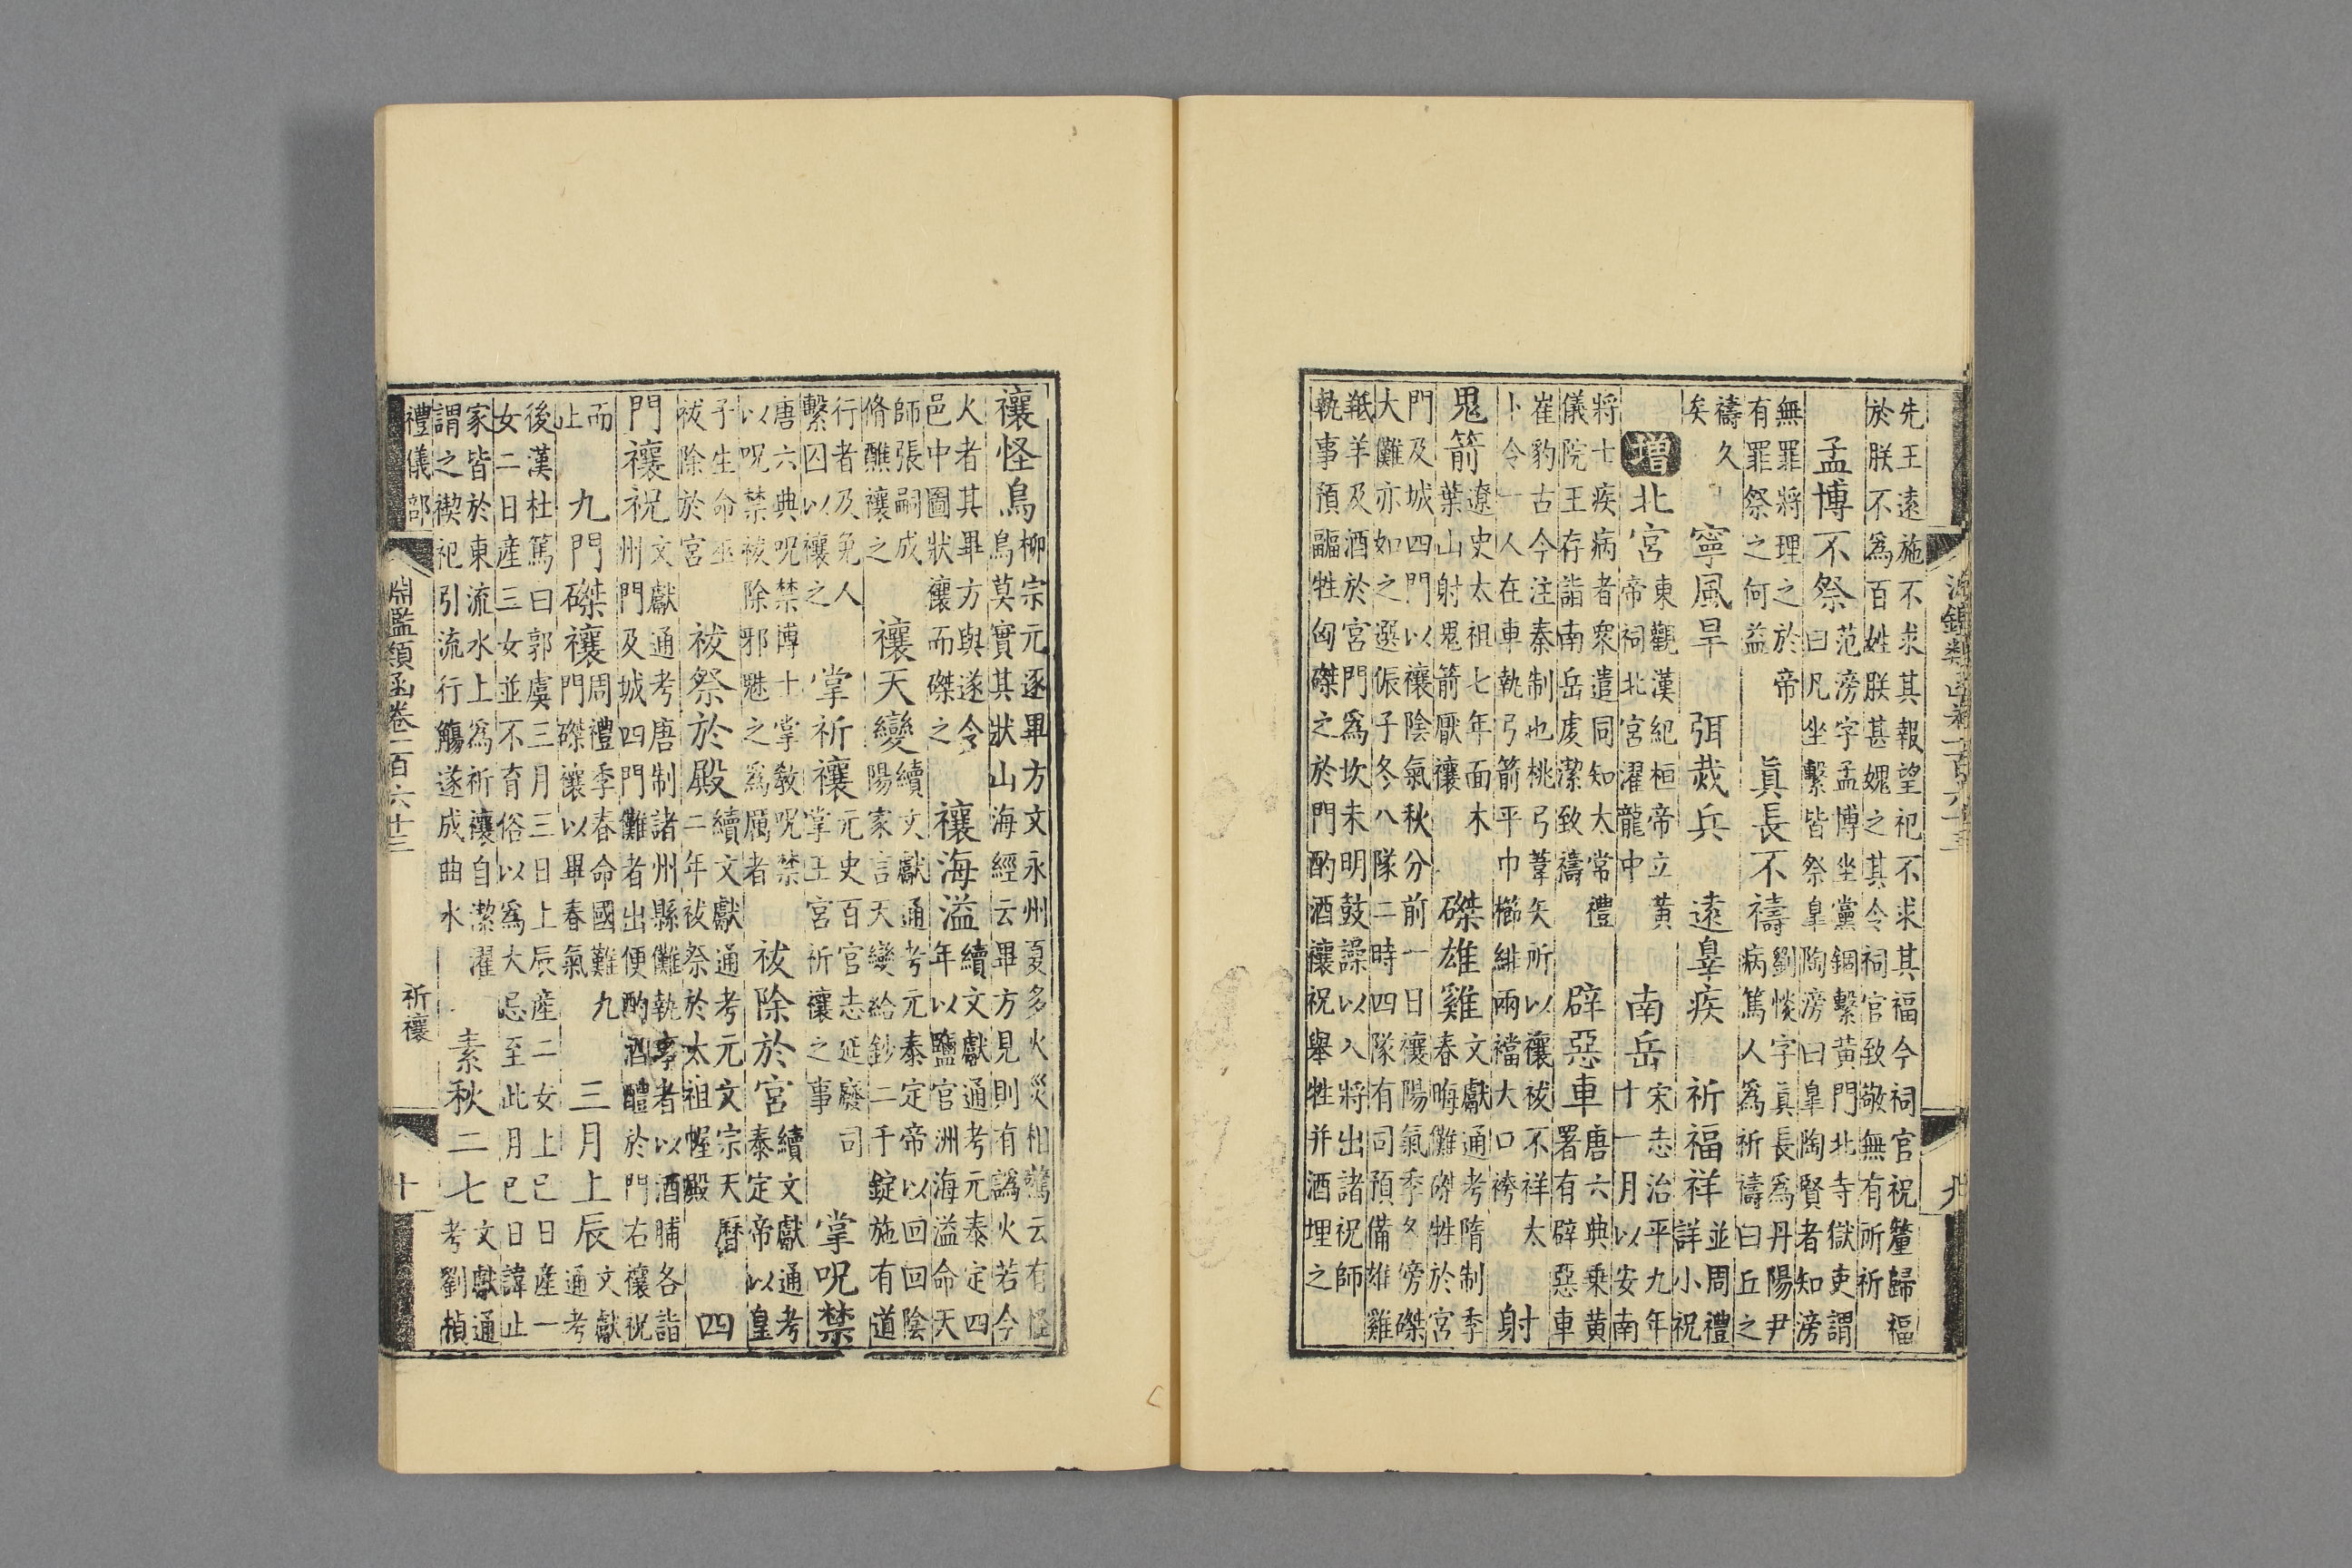 先王遠施不求其報望祀不求其福今祠官祝釐歸福
於朕不爲百姓朕甚媿之其令祠官致敬無有所祈
孟博不祭
范滂字孟博坐黨錮繫黃門北寺獄吏謂
曰凡坐繫皆祭皐陶滂曰皐陶賢者知滂
無罪將理之於帝
有罪祭之何益
眞長不禱
劉惔字真長爲丹陽尹
病篤人爲祈禱曰丘之
禱久
矣
寧風旱　弭烖兵　遠辠疾　祈福祥
並周禮
詳小祝
增北宮
東觀漢紀桓帝立黃
帝祠北宮濯龍中
南岳
宋志治平九年
十一月以安南
將士疾病者衆遣同知大常禮
儀院王存詣南岳虔潔致禱
辟惡車
唐六典乗黃
署有辟惡車
崔豹古今注秦制也桃弓葦矢所以禳祓不祥太
卜令一人在車執弓箭平巾櫛緋兩襠大口袴
射
鬼箭
遼史太祖七年面木
葉山射鬼箭厭禳
磔雄雞
文獻通考隋制季
春晦儺磔牲於宮
門及城四門以禳陰氣秋分前一日禳陽氣季冬傍磔
大儺亦如之選侲子冬八隊二時四隊有司預備雄雞
羝羊及酒於宮門爲坎未明鼓譟以入將出諸祝師
執事預疈牲匈磔之於門酌酒禳祝舉牲并酒埋之
禳怪鳥
柳宗元逐畢方文永州夏多火災相驚云有怪
鳥莫實其狀山海經云畢方見則有譌火若今
火者其畢方與遂令
邑中圖狀禳而磔之
禳海溢
續文獻通考元泰定四
年以鹽官洲海溢命天
師張嗣成
脩醮禳之
禳天變
續文獻通考元泰定帝以回回陰
陽家言天變給鈔二千錠施有道
行者及免人
繫囚以禳之
掌祈禳
元史百官志延慶司
掌王宮祈禳之事
掌呪禁
唐六典呪禁博士掌敎呪禁
以呪禁祓除邪魅之爲厲者
祓除於宮
續文獻通考
泰定帝以皇
子生命巫
祓除於宮
祓祭於殿
續文獻通考元文宗天曆
二年祓祭於太祖幄殿
四
門禳祝
文獻通考唐制諸州縣儺執事者以酒脯各詣
州門及城四門儺者出便酌酒醴於門右禳祝
而
止
九門磔禳
周禮季春命國難九
門磔禳以畢春氣
三月上辰
文獻
通考
後漢杜篤曰郭虞三月三日上辰産二女上巳日産一
女二日産三女並不育俗以爲大忌至此月巳日諱止
家皆於東流水上爲祈禳自潔濯
謂之禊祀引流行觴遂成曲水
素秋二七
文獻通
考劉楨
禮儀部
淵鑑類函卷一百六十三
祈禳
十